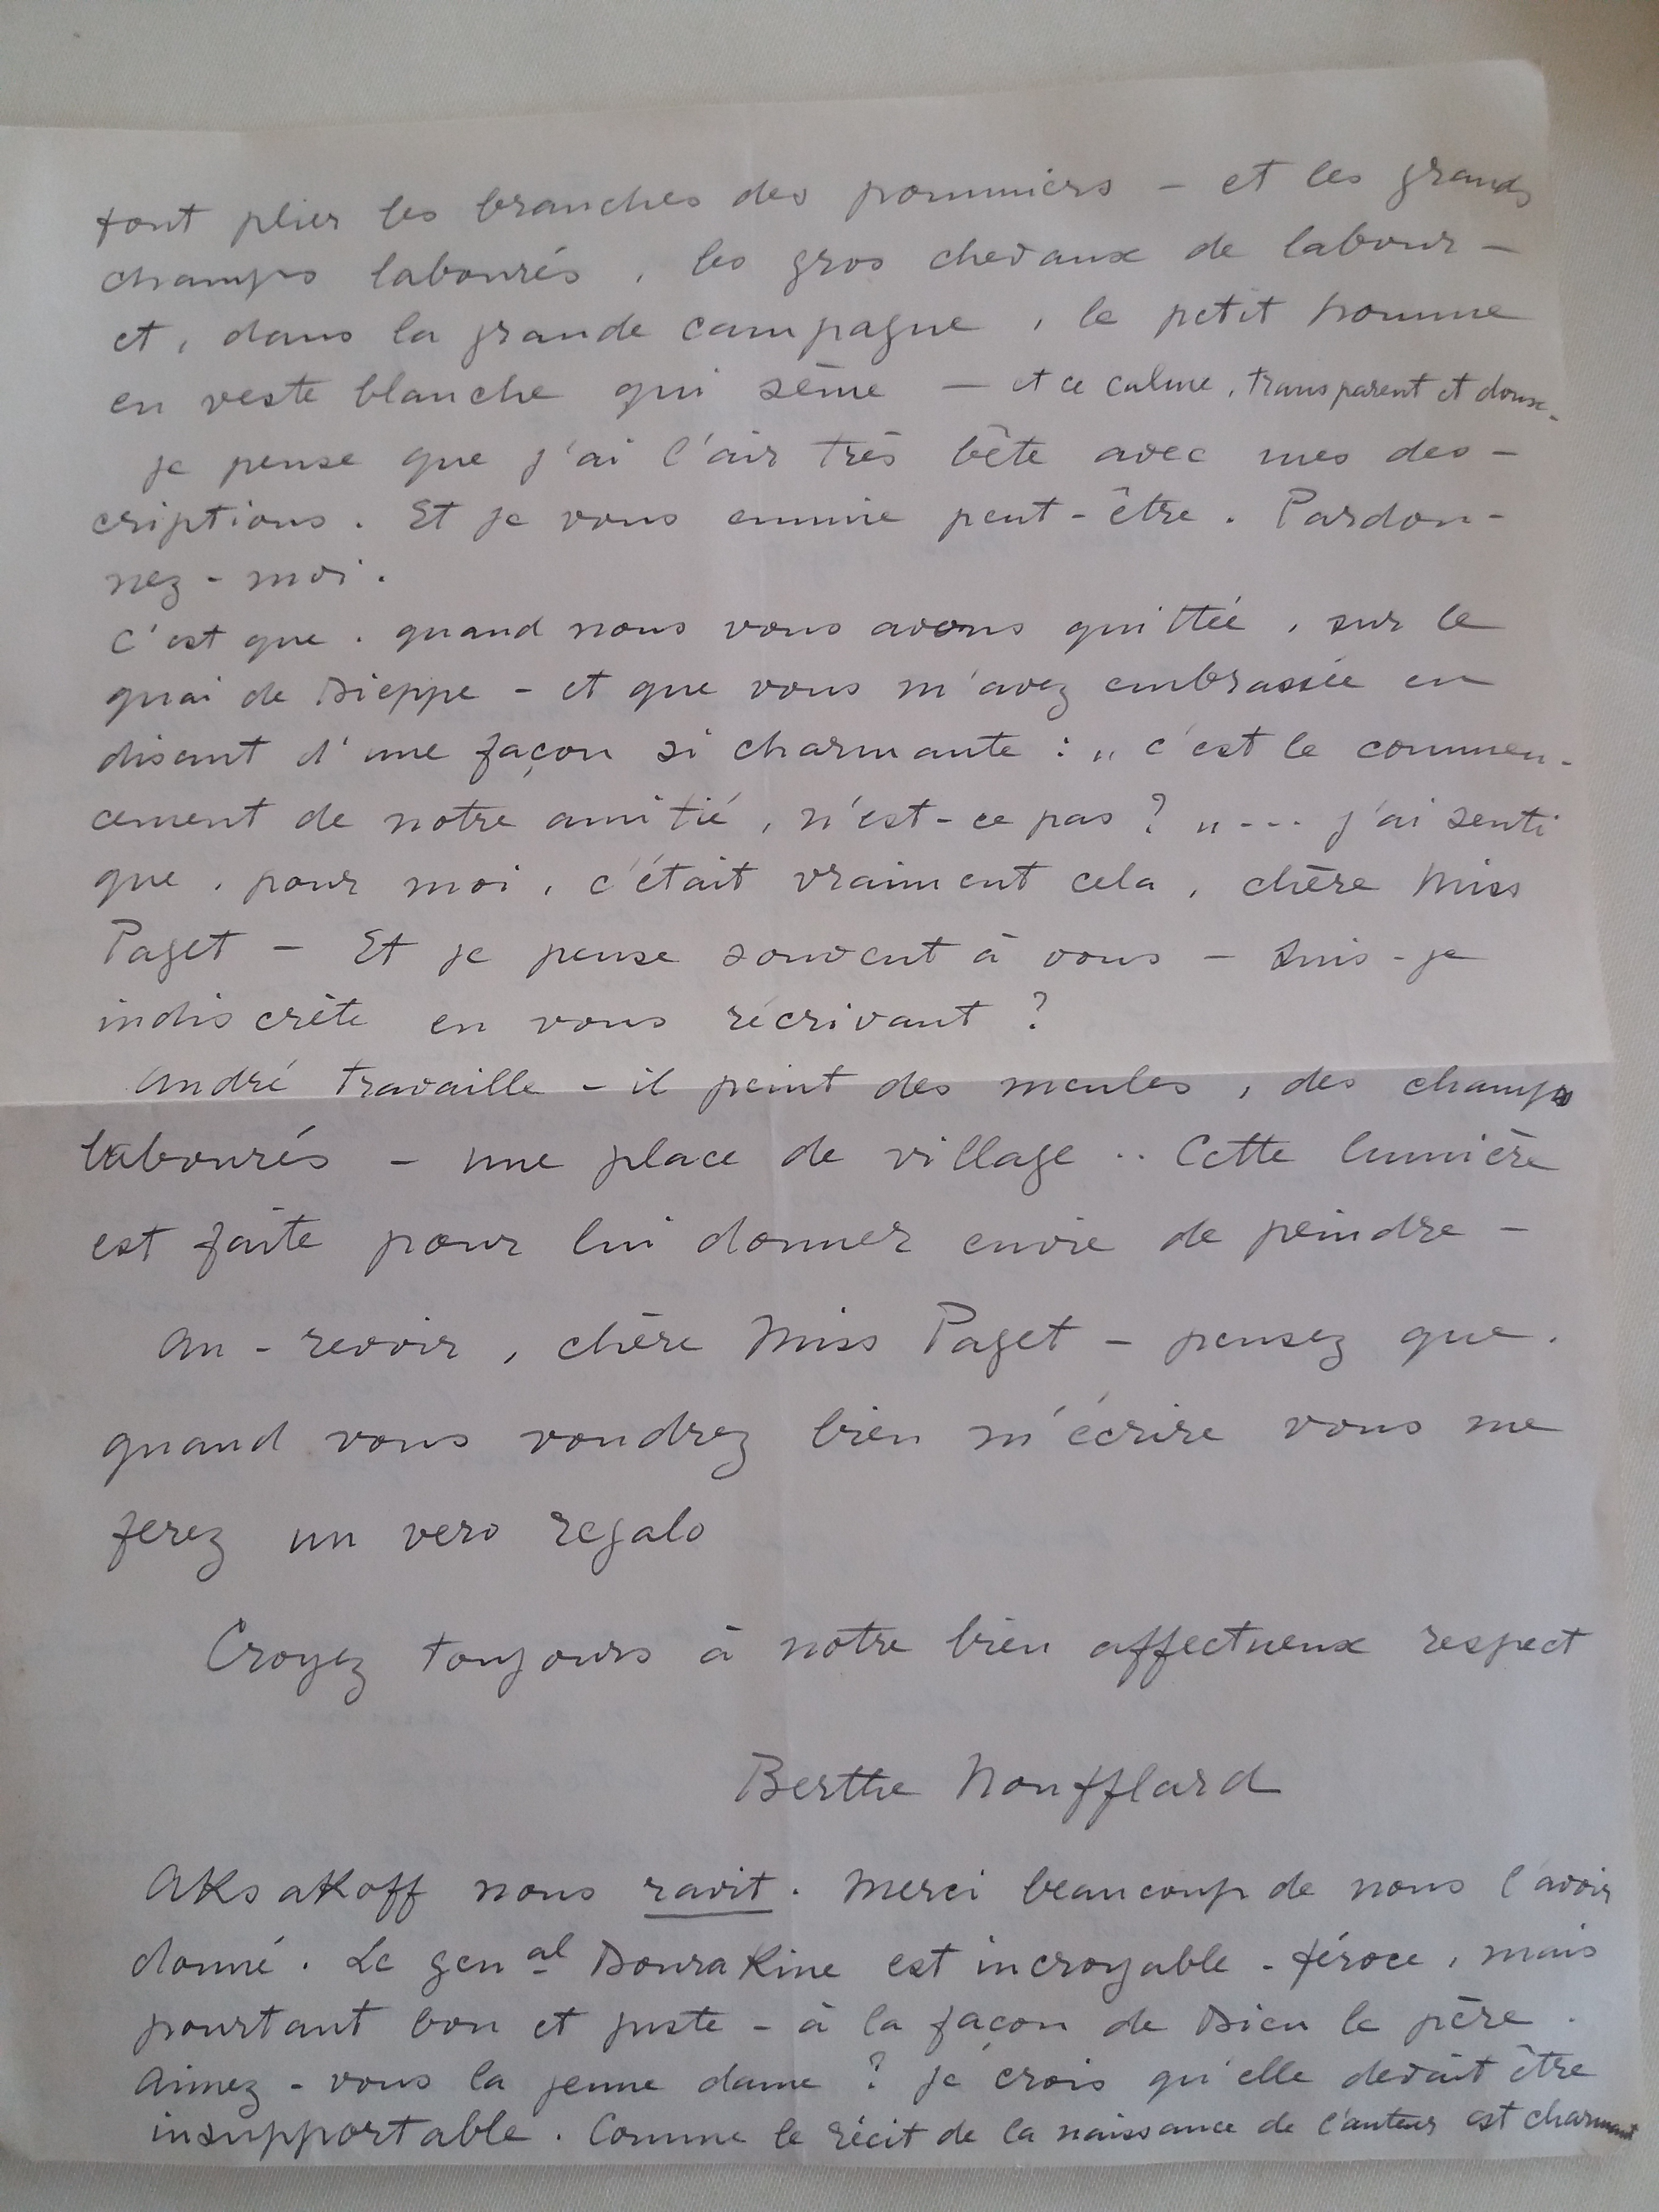 font plier les branches des pommiers – et les grands
champs labourés, les gros chevaux de labour –
et, dans la grande campagne, le petit homme
en veste blanche qui sème – et ce calme, transparent et doux –
je pense que j'ai l'air très bête avec mes des-
criptions. Et je vous ennuie peut-être. Pardon-
nez-moi.
C'est que, quand nous vous avons quittée, sur le
quai de Dieppe – et que vous m'avez embrassée en
disant d'une façon si charmante : „ c'est le commen-
cement de notre amitié, n'est-ce pas ? „ --- j'ai senti
que, pour moi, c'était vraiment cela, chère Miss
Paget – Et je pense souvent à vous – Suis-je
indiscrète en vous récrivant ?
André travaille – il peint des meules, des champs
labourés – une place de village .. Cette lumière
est faite pour lui donner envie de peindre –
Au-revoir, chère Miss Paget – pensez que,
quand vous voudrez bien m'écrire vous me
ferez un vero regalo
Croyez toujours à notre bien affectueux respect
Berthe Noufflard
Aksakoff nous ravit. Merci beaucoup de nous l'avoir
donné. Le genal Dourakine est incroyable – féroce, mais
pourtant bon et juste – à la façon de Dieu le père.
Aimez-vous la jeune dame ? je crois qu'elle devait être
insupportable. Comme le récit de la naissance de l'auteur est charmant